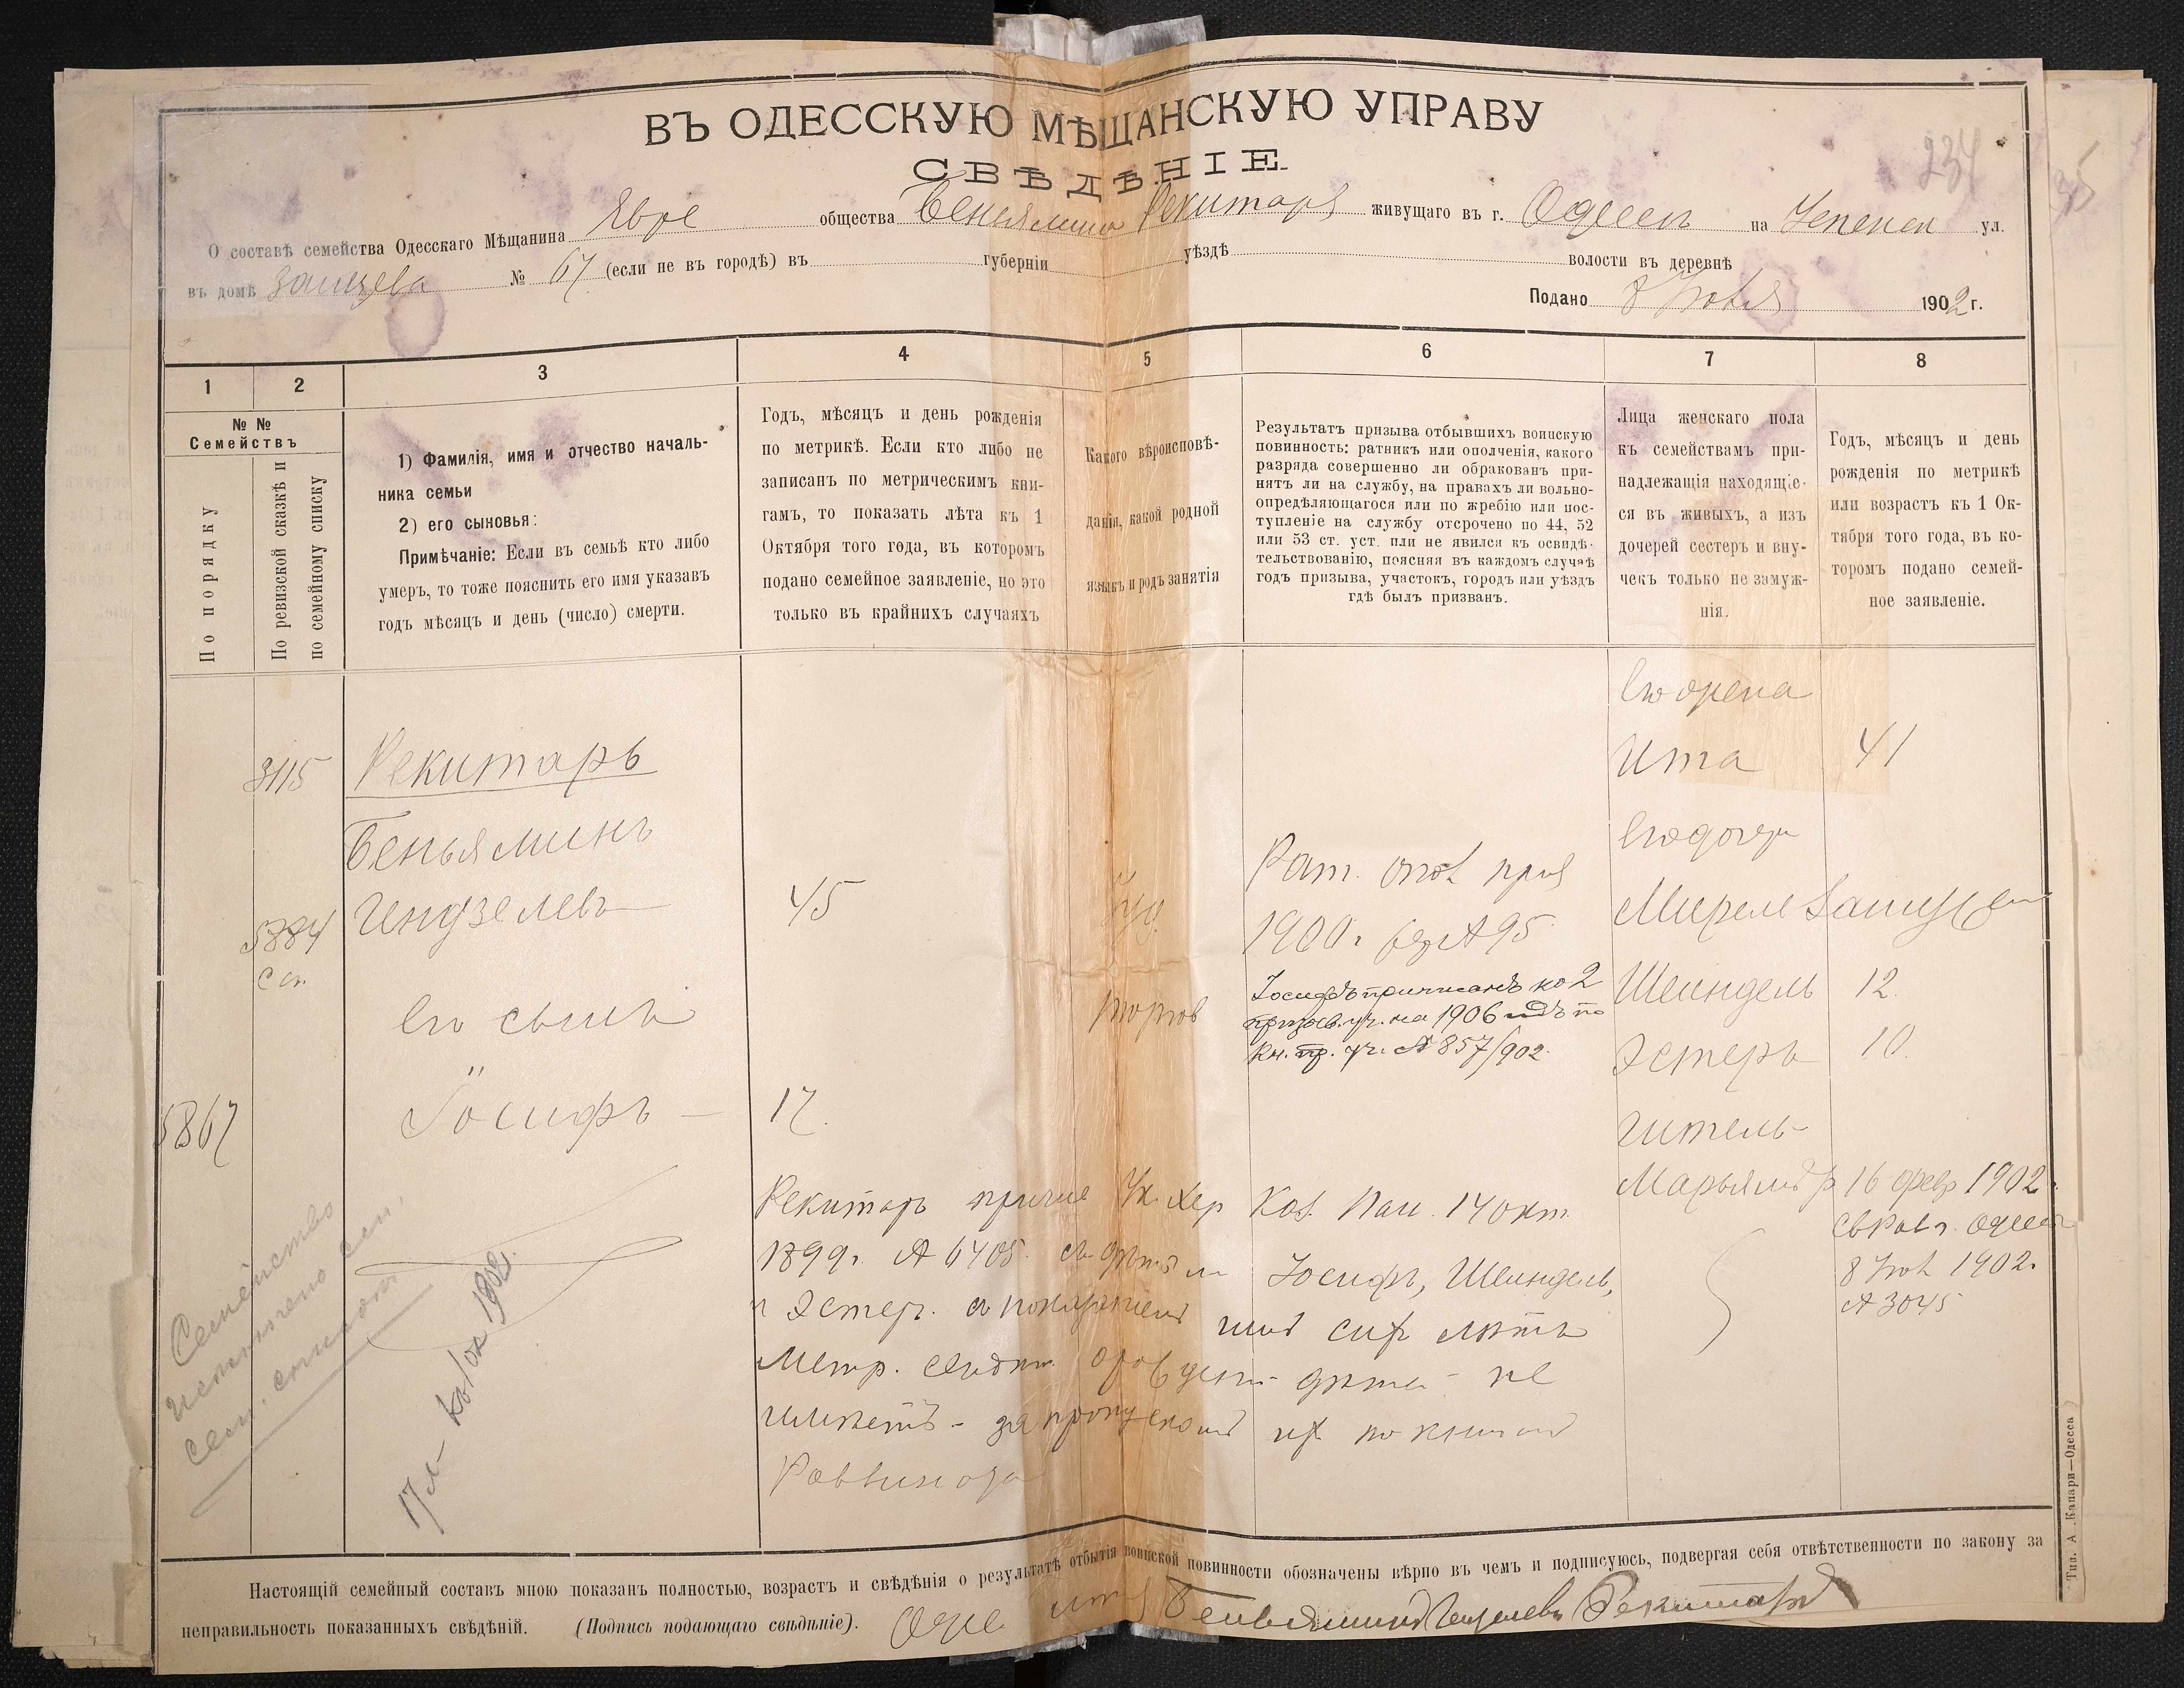 234
ВЪ ОДЕССКУЮ МѢЩАНСКУЮ УПРАВУ
СВѢДѢНІЕ.
О составѣ семейства Одесскаго Мѣщанина Евре общества Беньямина Рекитаря живущаго въ г. Одессѣ на Успенск ул.
въ домѣ Зайцева № 67 (если не въ городѣ) въ губерніи уѣздѣ волости въ деревнѣ
Подано 8 Іюля 1902 г.
1 2 3 4 5 6 7 8
№ № Семействъ
По порядку
По ревизской сказкѣ и
по семейному списку
1) Фамилія, имя и отчество началь-
ника семьи
2) его сыновья:
Примѣчаніе: Если въ семьѣ кто либо
умеръ, то тоже пояснить его имя указавъ
годъ мѣсяцъ и день (число) смерти.
Годъ, мѣсяцъ и день рожденія
по метрикѣ. Если кто либо не
записанъ по метрическимъ кни-
гамъ, то показать лѣта къ 1
Октября того года, въ которомъ
подано семейное заявленіе, но это
только въ крайнихъ случаяхъ
Какого вѣроисповѣ-
данія, какой родной
языкъ и родъ занятія
Результатъ призыва отбывшихъ воинскую
повинность: ратникъ или ополченія, какого
разряда совершенно ли обракованъ при-
нятъ ли на службу, на правахъ ли вольно-
опредѣляющагося или по жребію или пос-
тупленіе на службу отсрочено по 44, 52
или 53 ст. уст. или не явился къ освидѣ-
тельствованію, поясняя въ каждомъ случаѣ
годъ призыва, участокъ, городъ или уѣздъ
гдѣ былъ призванъ.
Лица женскаго пола
къ семействамъ при-
надлежащія находящіе-
ся въ живыхъ, а изъ
дочерей сестеръ и вну-
чекъ только не замуж-
нія.
Годъ, мѣсяцъ и день
рожденія по метрикѣ
или возрастъ къ 1 Ок-
тября того года, въ ко-
торомъ подано семей-
ное заявленіе.
3115
Рекитарь
Беньяминъ
5884
Гендзелевъ
45
его сынъ
Іосифъ
17.
5867
Іуд.
торгов
Рат. опол
1900 г. № 95
Іосифъ приписанъ ко 2
призыв. уч. на 1906 годъ по
кн. пр. уч. № 857/902.
его жена
Ита 41
его дочери
Мирель Замужем
Шейндель 12.
Эстеръ 10.
Гитель-
Марьямъ р 16 февр 1902
св Рав. Одесс
8 Іюл 1902.
№ 3045
Рекитарь Ук. Хер Каз. Пал. 14 окт.
1899 г. № 6405 съ дѣтьми Іосифъ, Шейндель,
и Эстер. съ показаніемъ имъ сихъ лѣтъ
Метр. о рожден дѣтей не
имѣетъ - за пропускомъ их по книгамъ
Раввината
Семейство
сем. списокъ
1902
Настоящій семейный составъ мною показанъ полностью, возрастъ и свѣдѣнія о результатѣ отбытія воинской повинности обозначены вѣрно въ чемъ и подписуюсь, подвергая себя отвѣтственности по закону за
неправильность показанныхъ свѣдѣній. (Подпись подающаго свѣдѣніе). Беньяминъ Гендзелевъ Рекитарь
Тип. А. Капари—Одесса